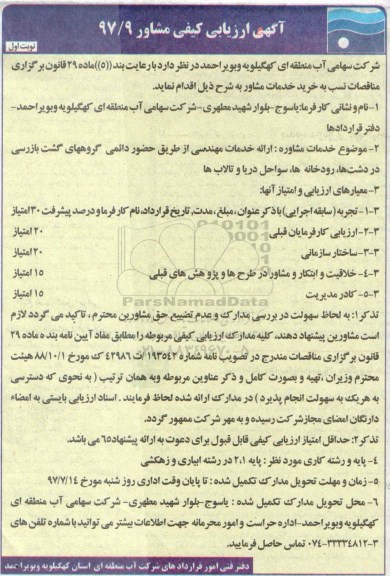 آگهی ارزیابی کیفی مشاور ۹۷/۹
نوبت اول
شرکت سهامی آب منطقه ای کهگیلویه وبویراحمد در نظر دارد با رعایت بند ((۵))ماده ۲۹ قانون برگزاری
مناقصات نسب به خرید خدمات مشاور به شرح ذیل اقدام نماید.
۱-نام و نشانی کارفرما:یاسوج-بلوار شهید مطهری-شرکت سهامی آب منطقه ای کهگیلویه وبویراحمد-
دفتر قراردادها
۲- موضوع خدمات مشاوره : ارائه خدمات مهندسی از طریق حضور دائمی گروههای گشت بازرسی
در دشت‌ها، رودخانه ها، سواحل دریا و تالاب ها
۳- معیارهای ارزیابی و امتیاز آنها:
۳-۱- تجربه (سابقه اجرایی) با ذکر عنوان ، مبلغ ، مدت، تاریخ قرارداد، نام کارفرما و درصد پیشرفت ۳۰ امتیاز
۳-۲-ارزیابی کارفرمایان قبلی ۲۰ امتیاز
۳-۳-ساختار سازمانی ۲۰ امتیاز
۳-۴- خلاقیت و ابتکار و مشاور در طرح ها و پژوهش های قبلی ۱۵ امتیاز
۳-۵- کادر مدیریت ۱۵ امتیاز
ParsNamadData
تذکر۱: به لحاظ سهولت در بررسی مدارک و عدم تضییع حق مشاورین محترم ، تاکید می گردد لازم
است مشاورین پیشنهاد دهند، کلیه مدارک ارزیابی کیفی مربوطه را مطابق مفاد آیین نامه بند ه ماده ۲۹
قانون برگزاری مناقصات مندرج در تصویب نامه شماره ۱۹۳۵۴۲/ت ۴۲۹۸۶ ک مورخ ۸۸/۱۰/۱ هیئت
محترم وزیران ،تهیه و بصورت کامل و ذکر عناوین مربوطه وبه همان ترتیب ( به نحوی که دسترسی
به هریک به سهولت انجام پذیرد ) در مدارک ارائه شده لحاظ فرمایند . اسناد ارزیابی بایستی به امضاء
دارنگان امضای مجاز شرکت رسیده و به مهر شرکت ممهور گردد.
تذکر۲: حداقل امتیاز ارزیابی کیفی قابل قبول برای دعوت به ارائه پیشنهاد ۶۵ می باشد.
۴- پایه و رشته کاری مورد نظر : پایه ۲،۱ در رشته آبیاری و زهکشی
۵- زمان و مهلت تحویل مدارک تکمیل شده : تا پایان وقت اداری روز شنبه مورخ ۹۷/۷/۱۴
۶- محل تحویل مدارک تکمیل شده : یاسوج-بلوار شهید مطهری- شرکت سهامی آب منطقه ای
کهگیلویه وبویراحمد-اداره حراست و امور محرمانه جهت اطلاعات بیشتر می توانید با شماره تلفن های
۳-۳۳۳۳۴۸۱۲-۰۷۴ تماس حاصل فرمایید.
دفتر فنی امور قرارداد های شرکت آب منطقه ای استان کهگیلویه وبویراحمد